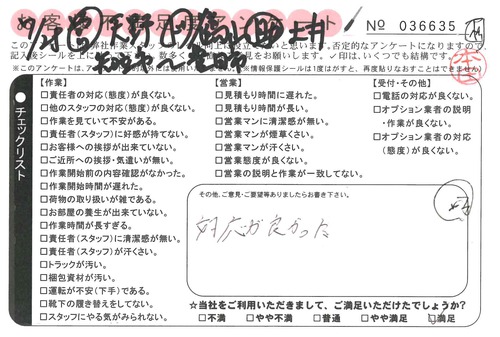 お客様不満足度アンケート
№ 036635
【作業】
□責任者の対応(態度)が良くない。
□他のスタッフの対応(態度)が良くない。
□作業を見ていて不安がある。
□責任者(スタッフ)に好感が持てない。
□お客様への挨拶が出来ていない。
□ご近所への挨拶・気遣いが無い。
□作業開始前の内容確認がなかった。
□作業開始時間が遅れた。
□荷物の取り扱いが雑である。
□お部屋の養生が出来ていない。
□作業時間が長すぎる。
□責任者(スタッフ)に清潔感が無い。
□責任者(スタッフ)が汗くさい。
□トラックが汚い。
□梱包資材が汚い。
□運転が不安(下手)である。
□靴下の履き替えをしてない。
□スタッフにやる気がみられない。
【営業】
□見積もり時間に遅れた。
□見積もり時間が長い。
□営業マンに清潔感が無い。
□営業マンが煙草くさい。
□営業マンが汗くさい。
□営業態度が良くない。
□営業の説明と作業が一致してない。
【受付・その他】
□電話の対応が良くない。
□オプション業者の説明
・作業が良くない。
□オプション業者の対応
(態度)が良くない。
●チェックリスト
その他、ご意見・ご要望等ありましたらお書き下さい。
対応が良かった
☆当社をご利用いただきまして、ご満足いただけたでしょうか?
□不満 □やや不満 □普通 □やや満足 □満足